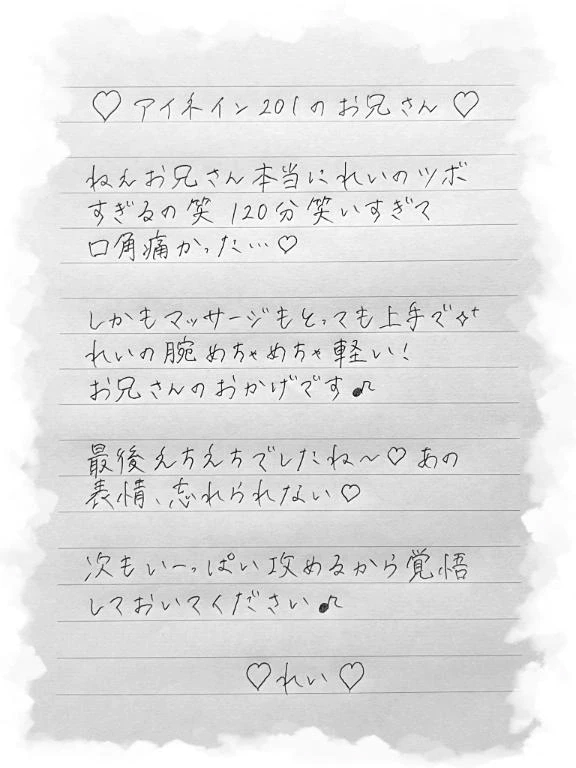 ♡アイネイン201のお兄さん♡
ねえお兄さん本当にれいのツボ
すぎるの笑 120分笑いすぎて
口角痛かった…♡
しかもマッサージもとっても上手で✧⁺
れいの腕めちゃめちゃ軽い!
お兄さんのおかげです♪
最後えちえちでしたね〜♡あの
表情、忘れられない♡
次もいーっぱい攻めるから覚悟
しておいてください♪
♡れい♡